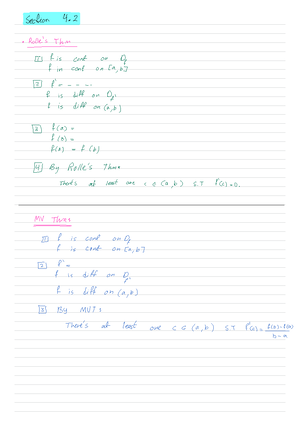 Section 4.2
• Rolle's Thm
1 f is cont on Df
f is cont on [a,b]
2 f' = - - -
f is diff on Df'
f is diff on (a,b)
3 f(a) =
f(b) =
f(a) = f(b)
4 By Rolle's Thm
There's at least one c ∈ (a,b) S.T f'(c)=0.
MV Thm
1 f is cont on Df
f is cont on [a,b]
2 f' =
f is diff on Df'
f is diff on (a,b)
3 By MVT:
There's at least one c ∈ (a,b) S.T f'(c) = f(b)-f(a)
b-a